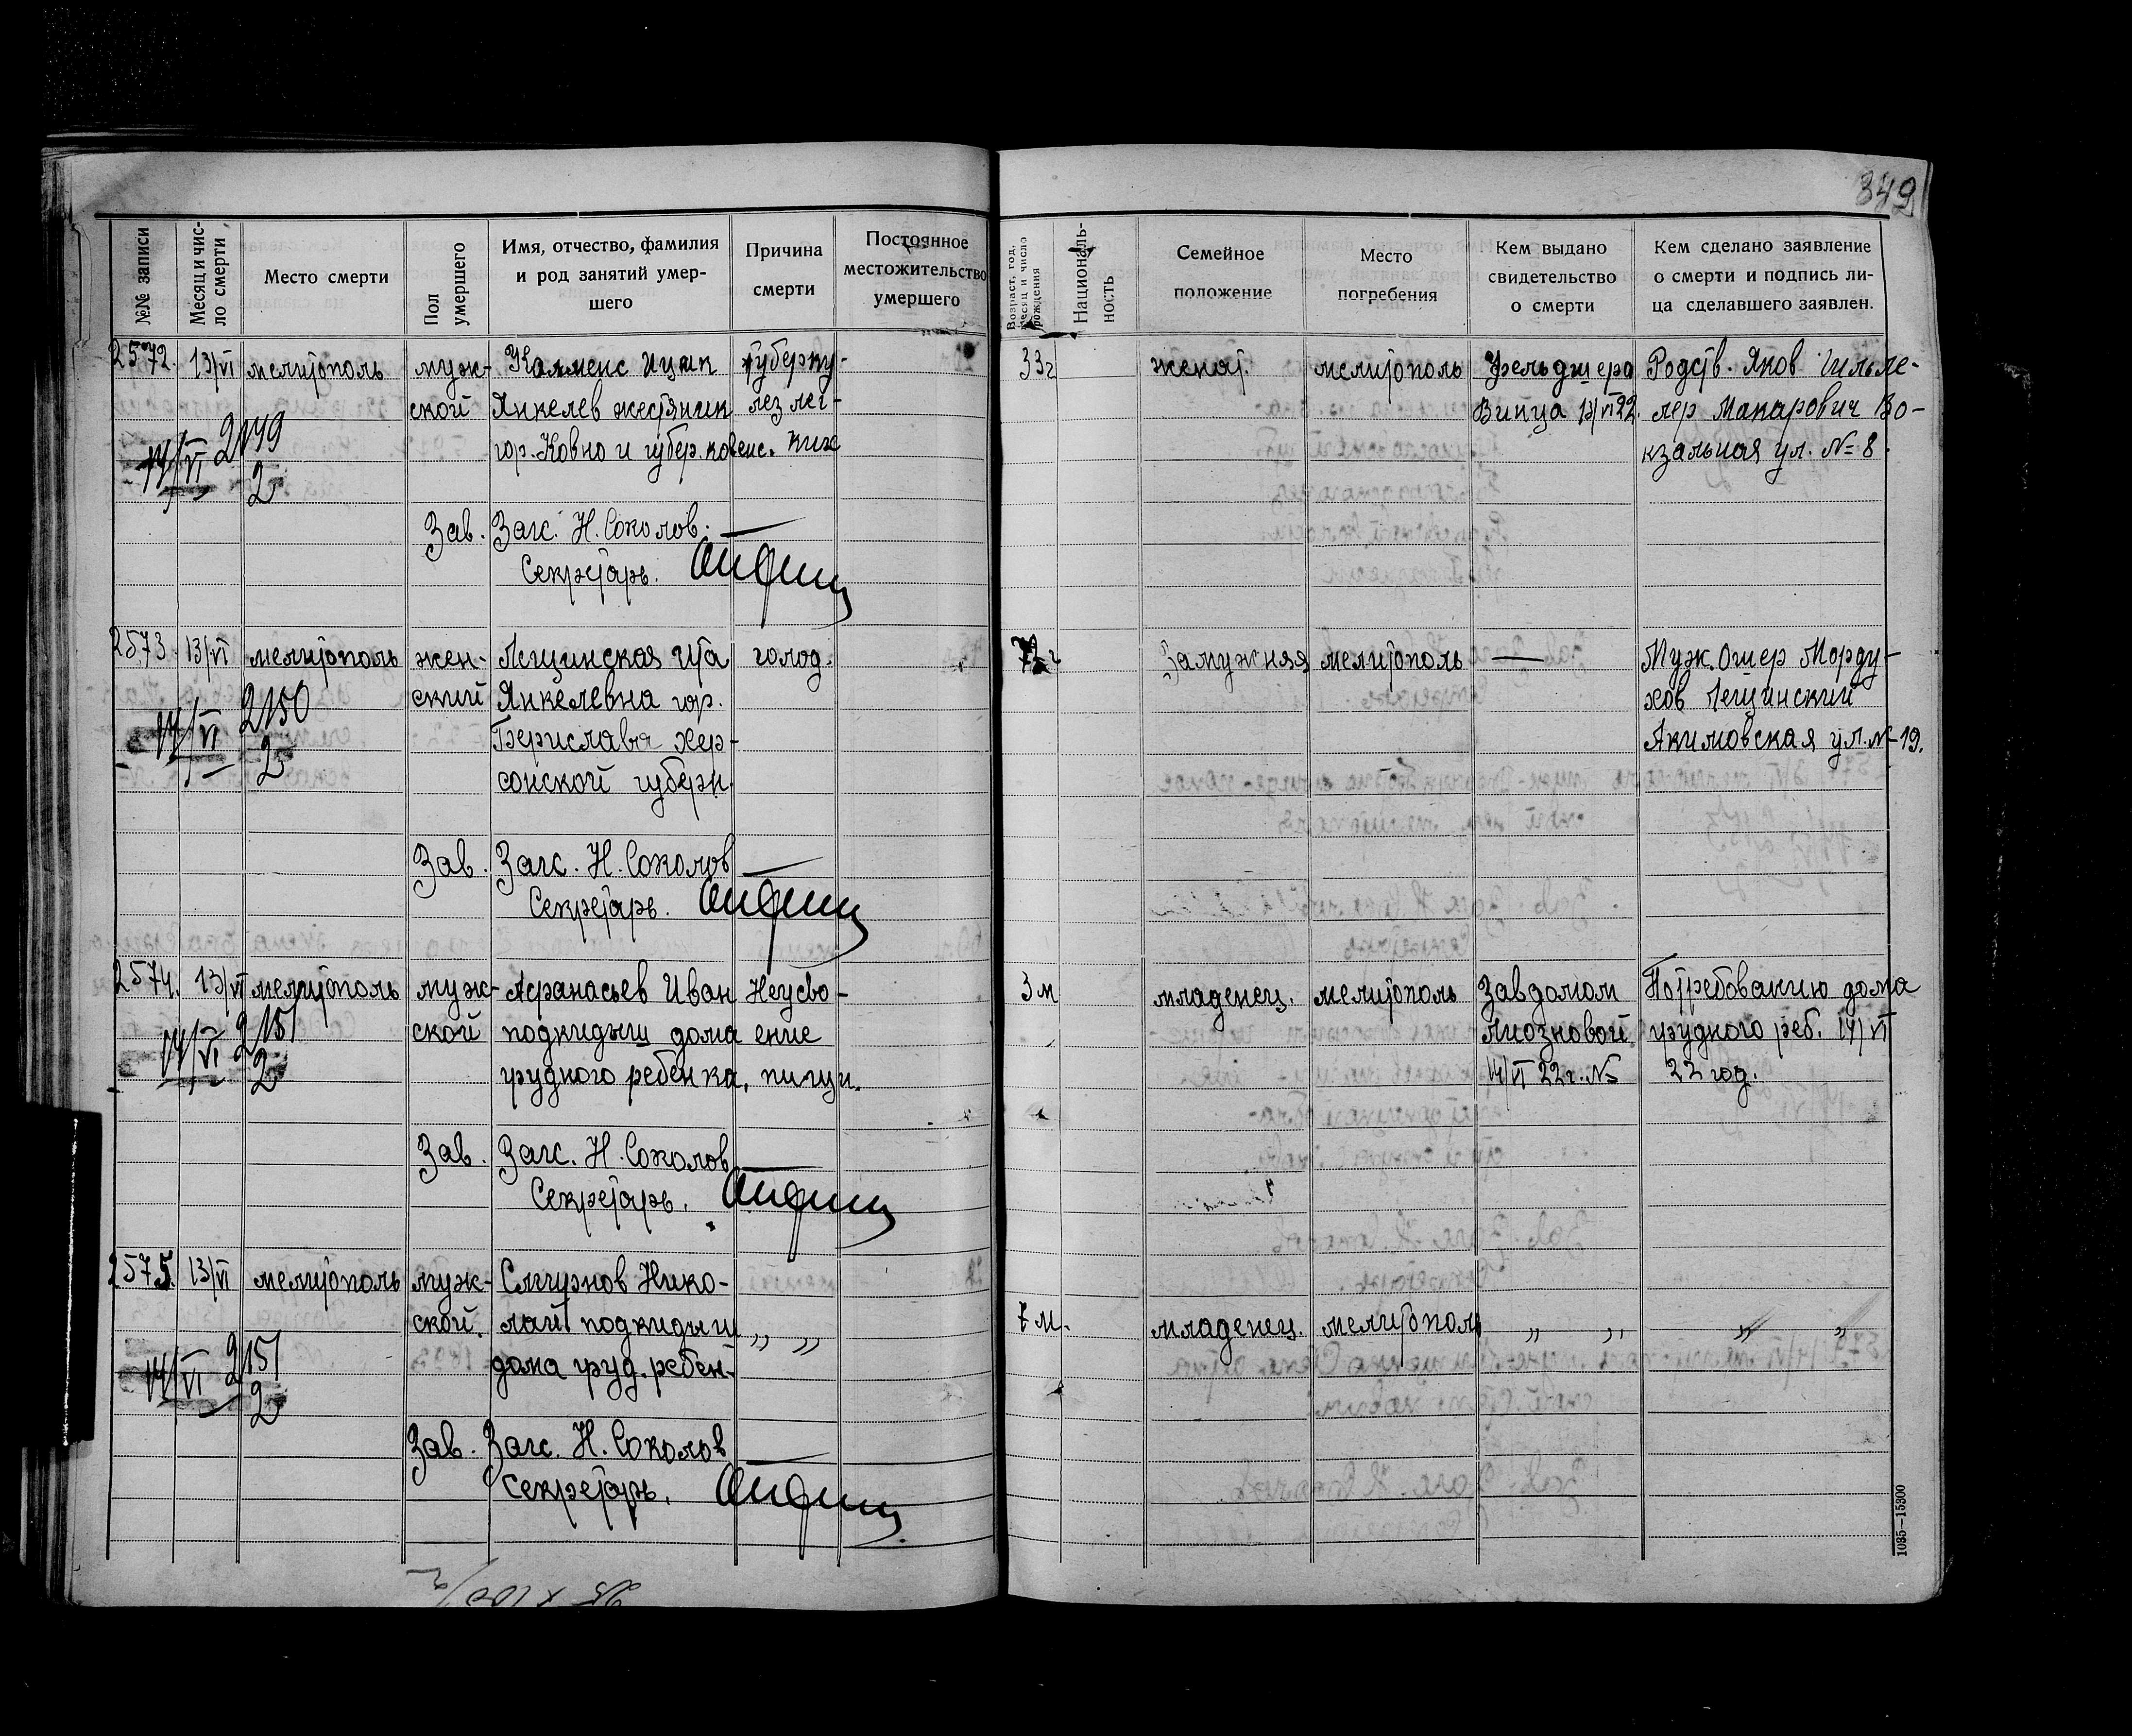 349
№№ записи
Месяц и чис-
ло смерти
Место смерти
Пол
умершего
Имя, отчество, фамилия
и род занятий умер-
шего
Причина
смерти
Постоянное
местожительство
умершего
Возраст, год,
месяц и число
рождения
Националь-
ность
Семейное
положение
Место
погребения
Кем выдано
свидетельство
о смерти
Кем сделано заявление
о смерти и подпись ли-
ца сделавшего заявлен.
2572. 13/VI мелитополь муж- Калменс Ицик туберку- 33г женат. мелитополь Фельдшера Родств. Яков
ской Янкелев жестяник лез лег- Винца 13/VI 22. лер Макарович Во-
14/VI 2149 гор. Ковно и губер. ковенс. ких кзальная ул. № 8
2
Зав. Загс. Н. Соколов.
Секретарь.
2573. 13/VI мелитополь жен- Лещинская Ита голод. 72г Замужняя мелитополь — Муж. Ошер Морду-
ский Янкелевна гор. хов Лещинский
14/VI 2150 Берислава хер- Акимовская ул. № 19.
2 сонской губерн.
Зав. Загс. Н. Соколов
Секретарь.
2574. 13/VI мелитополь муж- Афанасьев Иван Неусво- 3 м младенец. мелитополь Завдомом По требованию дома
14/VI 2151 ской подкидыш дома ение Миозновой грудного реб. 14/VI
2 грудного ребенка, пищи. 14/VI 22г. № 22 год.
Зав. Загс. Н. Соколов
Секретарь.
2575. 13/VI мелитополь муж- Смирнов Нико-
ской. лай подкидыш „ „ м. младенец. мелитополь „ „ „ „
14/VI 2151 дома груд. ребен-
2
Зав. Загс. Н. Соколов
Секретарь.
1035—15300
25 x 100/2